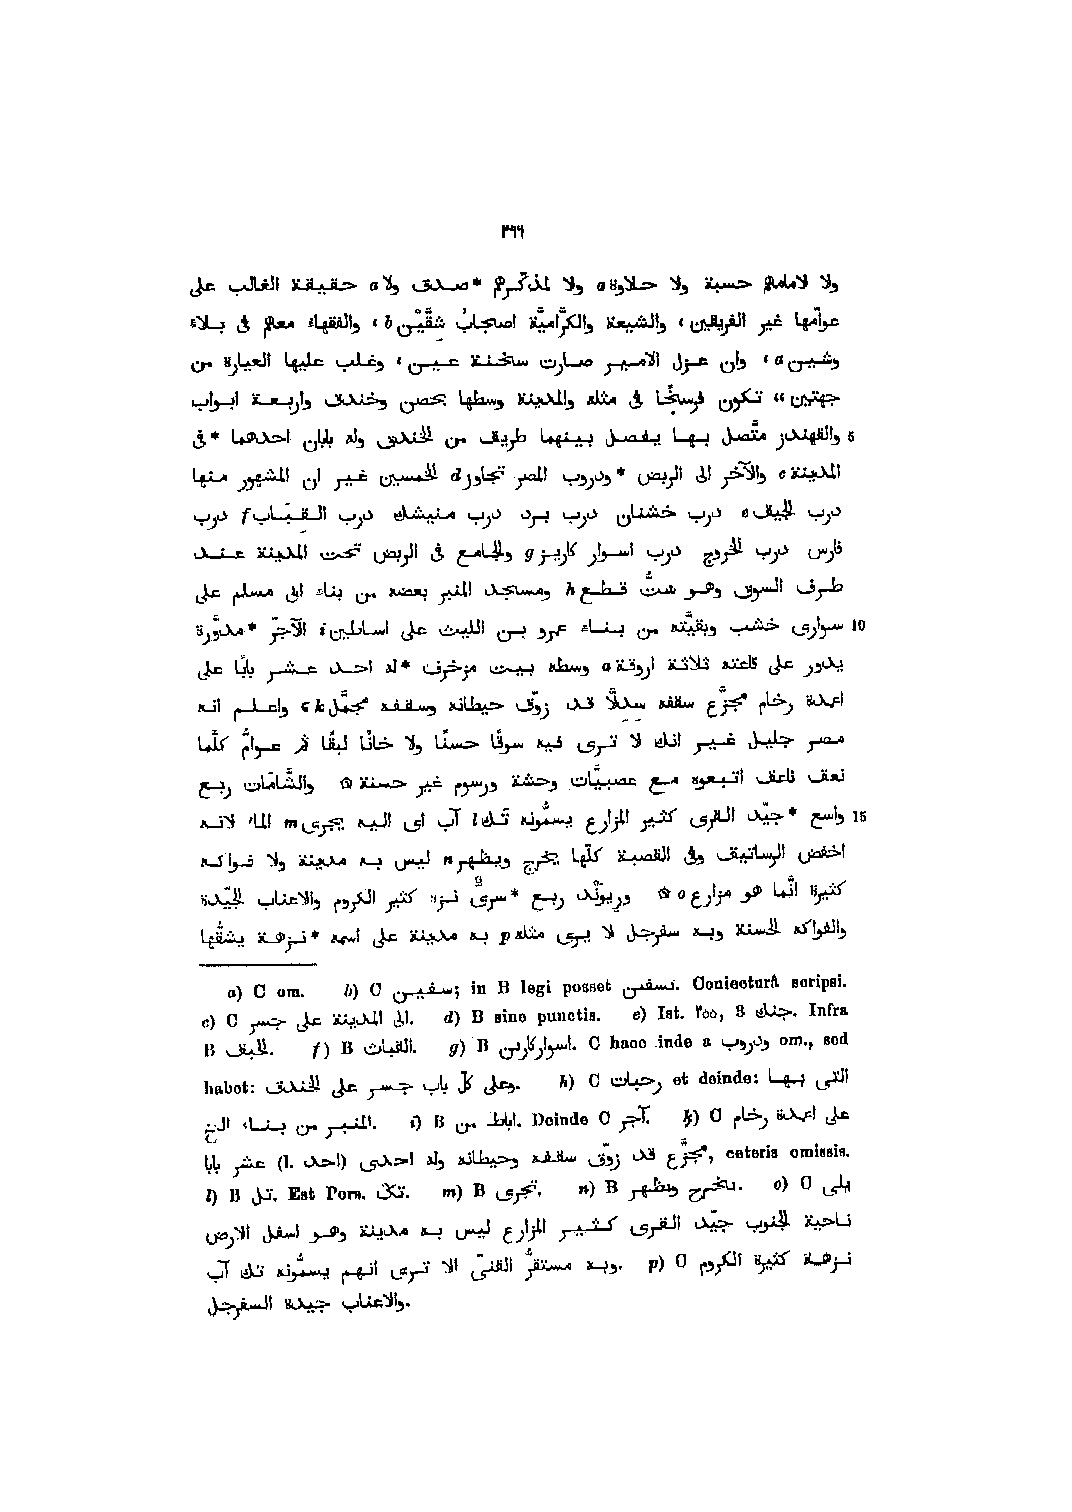 ٣١٦
ولا لامامهم حسبة ولا حلاوة a ولا لمذكّرهم *صدق ولا a حقيقة الغالب على
عوامّها غير الفريقين، والشيعة والكرّاميّة اصحابُ شقَّيْن b، والفقهاء معهم فى بلاء
وشين a، وان عزل الامير صارت سخنة عين، وغلب عليها العيارة من
جهتين“ تكون فرسخًا فى مثله والمدينة وسطها بحصن وخندق واربعة ابواب
5 والقهندز متّصل بها يفصل بينهما طريق من الخندق وله بابان احدهما *فى
المدينة c والآخر الى الربض *ودروب المصر تجاوز d الخمسين غير ان المشهور منها
درب الجيق e درب خشنان درب برد درب منيشك درب القبّاب f درب
فارس درب الخروج درب اسوار كاريز g والجامع فى الربض تحت المدينة عند
طرف السوق وهو ستُّ قطع h ومسجد المنبر بعضه من بناء ابى مسلم على
10 سوارى خشب وبقيّته من بناء عمرو بن الليث على اساطين i الآجرّ *مدوَّرة
يدور على قاعته ثلاثة اروقة a وسطه بيت مزخرف *له احد عشر بابًا على
اعمدة رخام مجزَّع سقفه سدلًّا قد زوّق حيطانه وسقفه مجمَّل k، واعلم انه
مصر جليل غير انك لا ترى فيه سوقًا حسنًا ولا خانًا لبقًا ثم عوامُّ كلّما
نعق ناعق اتبعوه مع عصبيّات وحشة ورسوم غير حسنة ۞ والشَّامَات ربع
15 واسع *جيّد القرى كثير المزارع يسمُّونه تك l آب اى اليه يجرى m الماء لانه
اخفض الرساتيق وفى القصبة كلّها يخرج ويظهر n ليس به مدينة ولا فواكه
كثيرة انّما هو مزارع o ۞ وريوَنْد ربع *سرىٌّ نزه كثير الكروم والاعناب الجيّدة
والفواكه الحسنة وبه سفرجل لا يرى مثله p به مدينة على اسمه *نزهة يشقّها
a) C om. b) C سفيين; in B legi posset تسفين. Coniecturâ scripsi.
c) C الى المدينة على جسر. d) B sine punctis. e) Ist. ٢٥٥, 3 جنك. Infra
B الحيق. f) B القبات. g) B اسواركارين. C haec inde a ودروب om., sed
habet: وعلى كلّ باب جسر على الخندق. h) C رحبات et deinde: التى بها
المنبر من بناء الخ. i) B اباط من. Deinde C آجر. k) C على اعمدة رخام
مجزَّع قد زوّق سقفه وحيطانه وله احدى (l. احد) عشر بابا, ceteris omissis.
l) B تل. Est Pers. تك. m) B تجرى. n) B بتخرج ونظهر. o) C يلى
ناحية الجنوب جيّد القرى كثير المزارع ليس به مدينة وهو اسفل الارض
وبه مستقرُّ القنىّ الا ترى انهم يسمُّونه تك آب. p) C نزهة كثيرة الكروم
والاعناب جيدة السفرجل.